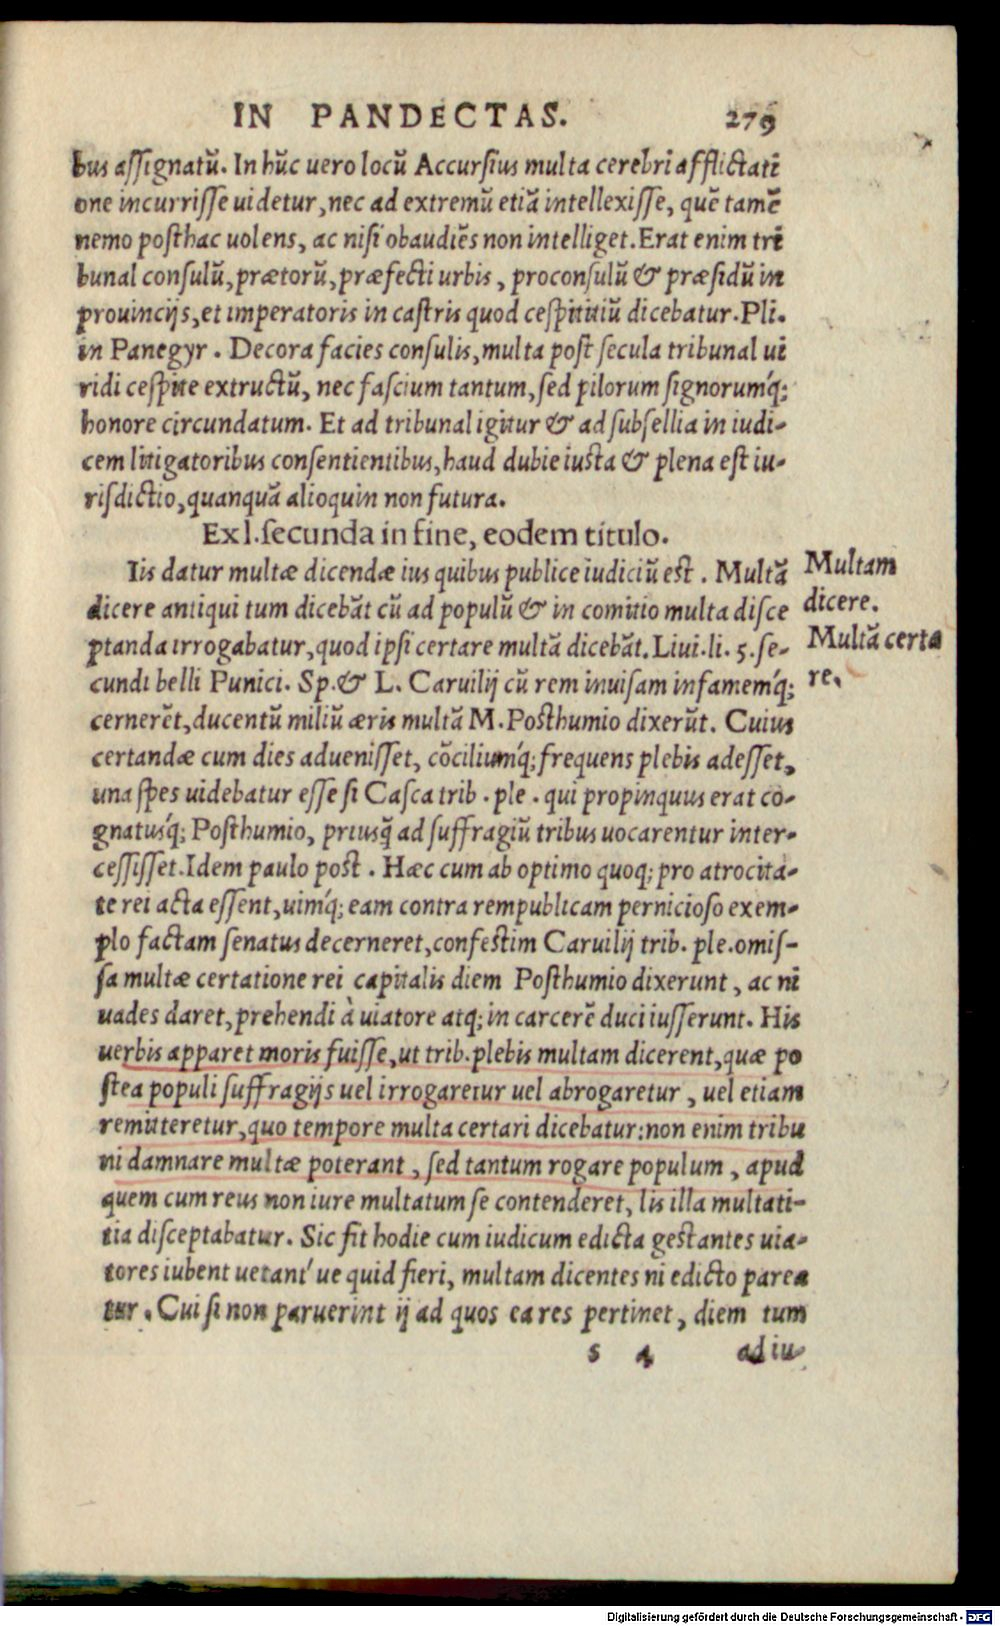 IN PANDECTAS. 279
bus assignatū. In hūc uero locū Accursius multa cerebri afflictati
one incurrisse uidetur, nec ad extremū etiā intellexisse, quē tamē
nemo posthac uolens, ac nisi obaudiēs non intelliget. Erat enim tri
bunal consulū, prætorū, præfecti urbis, proconsulū & præsidū in
prouincijs, et imperatoris in castris quod cespititiū dicebatur. Pli.
in Panegyr. Decora facies consulis, multa post secula tribunal ui
ridi cespite extructū, nec fascium tantum, sed pilorum signorumq́;
honore circundatum. Et ad tribunal igitur & ad subsellia in iudi-
cem litigatoribus consentientibus, haud dubie iusta & plena est iu-
risdictio, quanquā alioquin non futura.
Ex l. secunda in fine, eodem titulo.
Iis datur multæ dicendæ ius quibus publice iudiciū est. Multā
dicere antiqui tum dicebāt cū ad populū & in comitio multa disce
ptanda irrogabatur, quod ipsi certare multā dicebāt. Liui. li. 5. se-
cundi belli Punici. Sp. & L. Caruilij cū rem inuisam infamemq́;
cernerēt, ducentū miliū æris multā M. Posthumio dixerūt. Cuius
certandæ cum dies aduenisset, cōciliumq́; frequens plebis adesset,
una spes uidebatur esse si Casca trib. ple. qui propinquus erat co-
gnatusq́; Posthumio, priusq̃ ad suffragiū tribus uocarentur inter-
cessisset. Idem paulo post. Hæc cum ab optimo quoq; pro atrocita-
te rei acta essent, uimq́; eam contra rempublicam pernicioso exem-
plo factam senatus decerneret, confestim Caruilij trib. ple. omis-
sa multæ certatione rei capitalis diem Posthumio dixerunt, ac ni
uades daret, prehendi à uiatore atq; in carcerē duci iusserunt. His
uerbis apparet moris fuisse, ut trib. plebis multam dicerent, quæ po
stea populi suffragijs uel irrogaretur uel abrogaretur, uel etiam
remitteretur, quo tempore multa certari dicebatur: non enim tribu
ni damnare multæ poterant, sed tantum rogare populum, apud
quem cum reus non iure multatum se contenderet, lis illa multati-
tia disceptabatur. Sic fit hodie cum iudicum edicta gestantes uia-
tores iubent uetant´ue quid fieri, multam dicentes ni edicto parea
tur. Cui si non paruerint ij ad quos ea res pertinet, diem tum
s 4 ad iu-
Multam
dicere.
Multā certa
re.
Digitalisierung gefördert durch die Deutsche Forschungsgemeinschaft - DFG